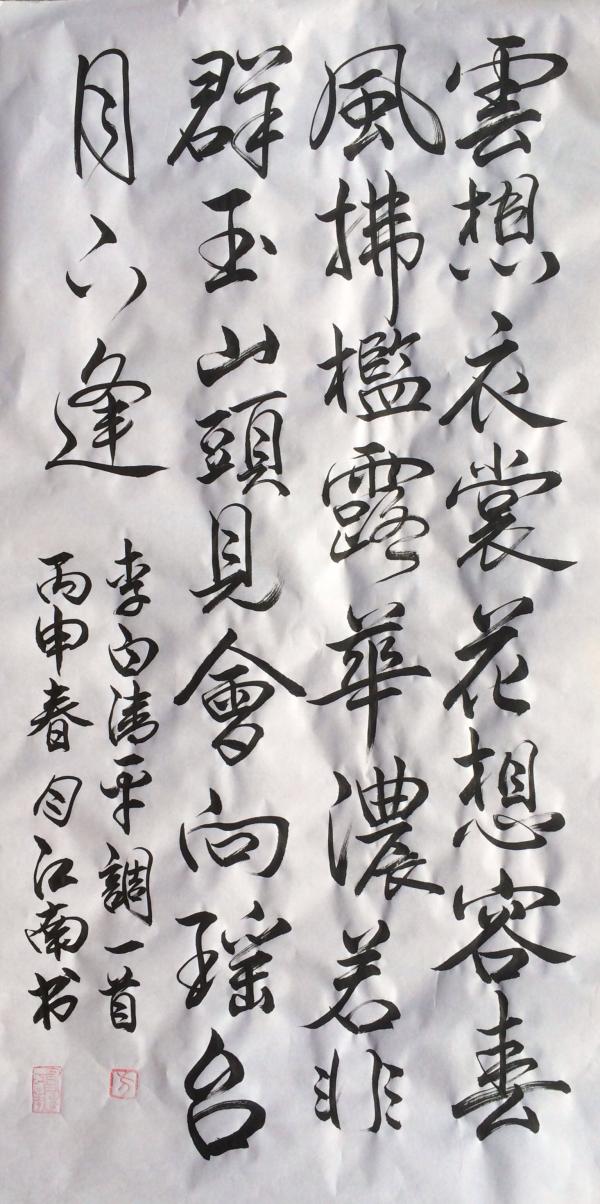 雲想衣裳花想容春
風拂檻露華濃若非
群玉山頭見會向瑶台
月下逢
李白清平調一首
丙申春月江南书